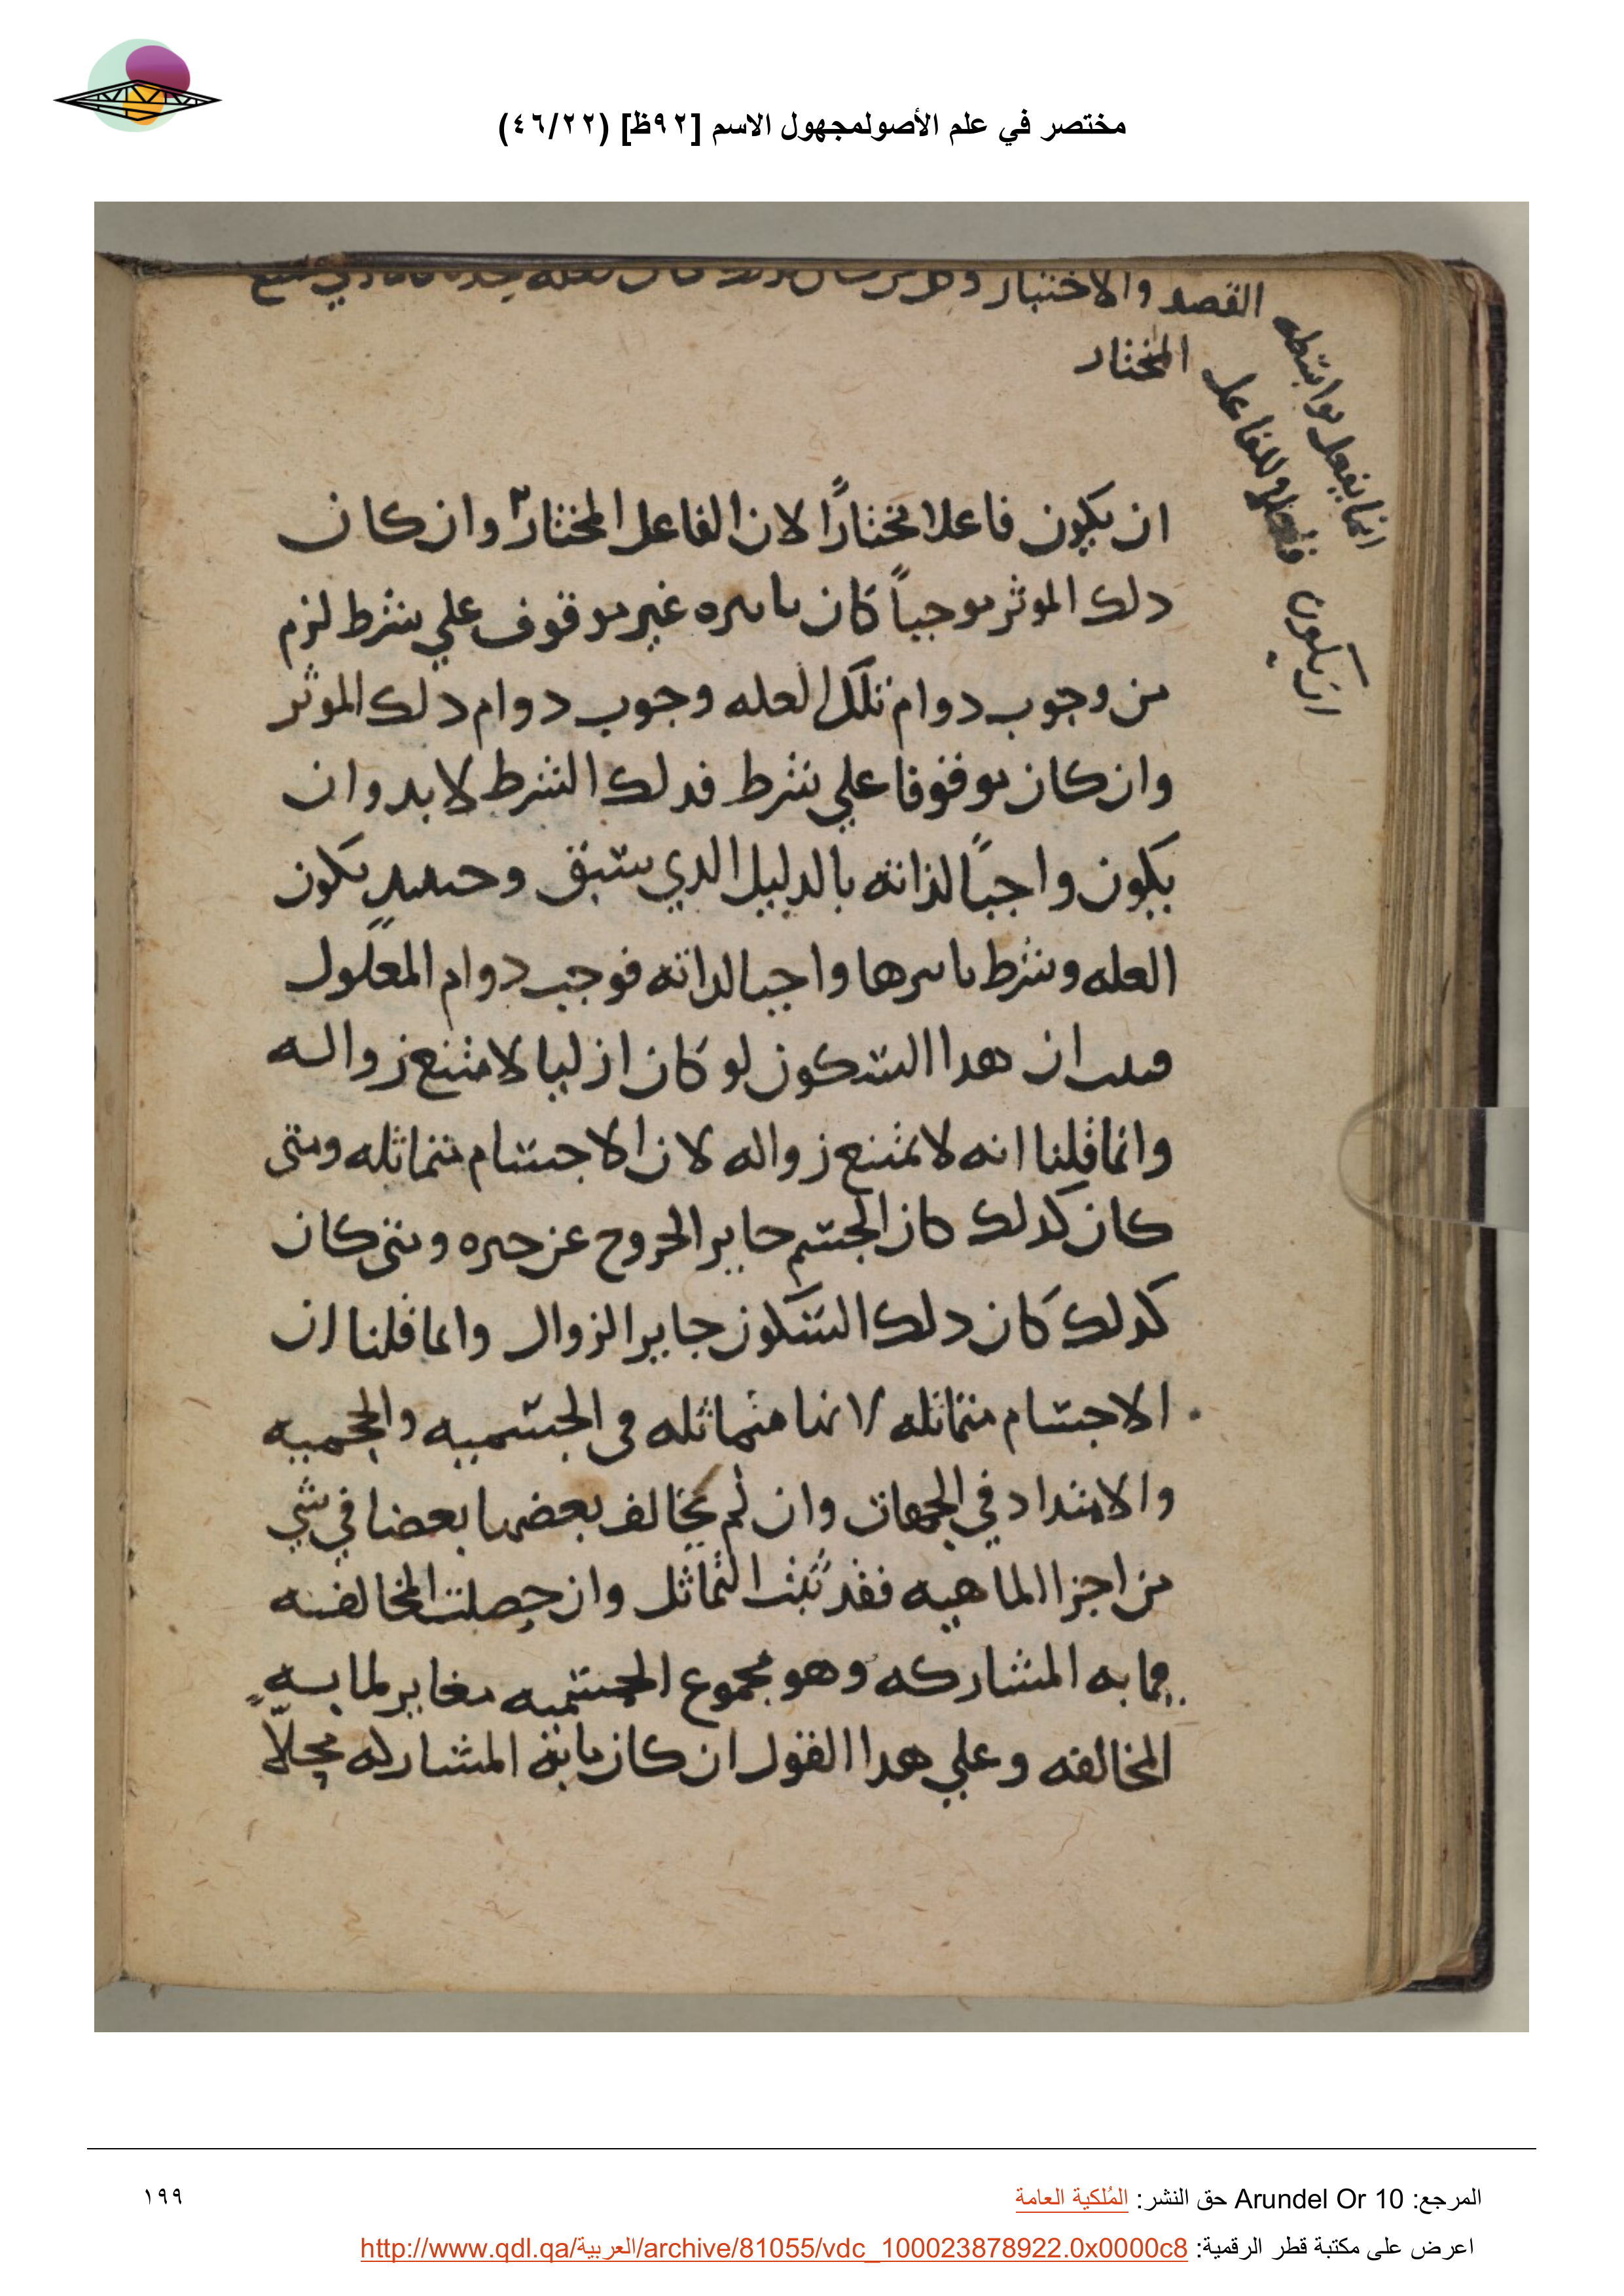 مختصر في علم الأصولمجهول الاسم [٩٢ظ] (٤٦/٢٢)
القصد والاختيار وكل من كان كذلك كان
المختار
انما يفعل بواسطه
فعله وللفاعل
ان يكون
ان يكون فاعلا مختاراً لان الفاعل المختار وان كان
دلك الموثر موجباً كان باسره غير موقوف علي شرط لزم
من وجوب دوام تلك العله وجوب دوام دلك الموثر
وان كان موقوفا علي شرط فدلك الشرط لا بد وان
يكون واجباً لذاته بالدليل الدي سبق وحينيدٍ يكون
العله وشرط باسرها واجبا لداته فوجب دوام المعلول
فثبت ان هدا السكون لو كان ازليا لامتنع زواله
وانما قلنا انه لا يمتنع زواله لان الاجسام متماثله ومتى
كان كدلك كان الجسم جايز الخروج عن حيزه ومتى كان
كدلك كان دلك السكون جايز الزوال وانما قلنا ان
الاجسام متماثله لانها متماثله في الجسميه والحجميه
والامتداد في الجهات وان لم يخالف بعضها بعضا في شي
من اجزا الماهيه فقد ثبت التماثل وان حصلت المخالفه
فما به المشاركه وهو مجموع الجسميه مغاير لما به
المخالفه وعلي هدا القول ان كان ما به المشاركه محلّا
المرجع: Arundel Or 10 حق النشر: المُلكية العامة
١٩٩
اعرض على مكتبة قطر الرقمية: http://www.qdl.qa/العربية/archive/81055/vdc_100023878922.0x0000c8